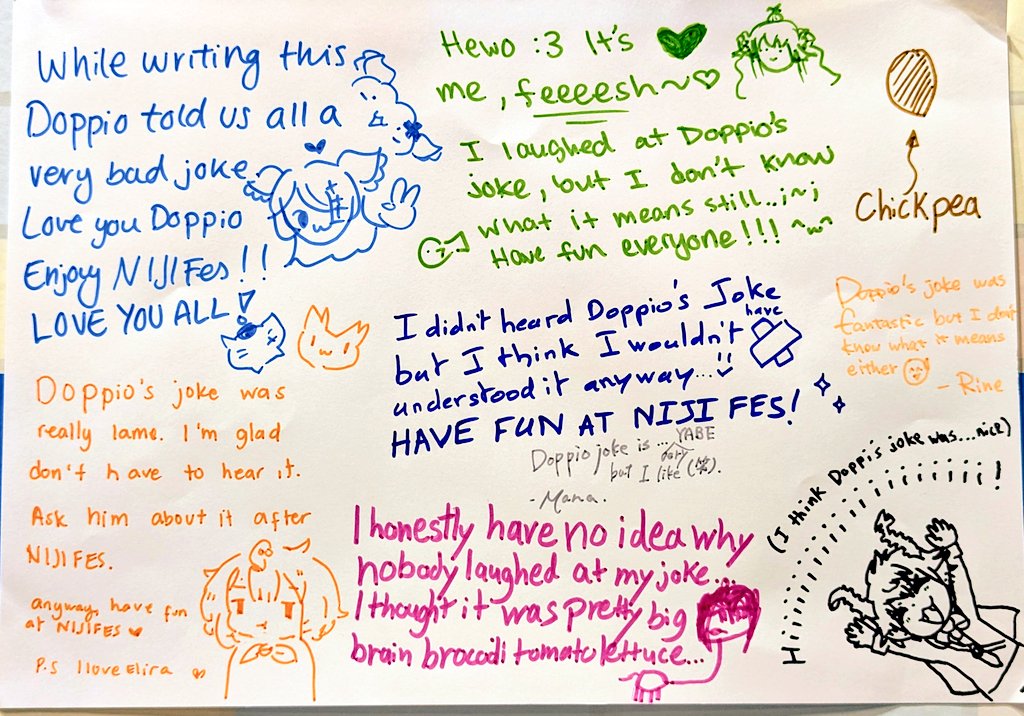 While writing this
Doppio told us all a
very bad joke
Love you Doppio
Enjoyy NIJIFes!!
LOVE YOU ALL!
Hewo :3 It's
me, feeeesh~♡
I laughed at Doppio's
joke, but I don't know
what it means still..;~;
Have fun everyone!!! ^w^
Chickpea
I didn't heard Doppio's Joke
but I think I wouldn't have
understood it anyway...
HAVE FUN AT NIJI FES!
Doppio's joke was
fantastic but I don't
know what it means
either
- Rine
Doppio's joke was
really lame. I'm glad
don't have to hear it.
Ask him about it after
NIJIFES.
anyway, have fun
at NIJIFES ♥
P.S I love Elira ♡
Doppio joke is ... YABE
but I like
-Mana.
I honestly have no idea why
nobody laughed at my joke...
I thought it was pretty big
brain brocodi tomato lettuce...
(I think Doppi's joke was...nick)
Hiiiiiiiiiiiiiiiiiii!